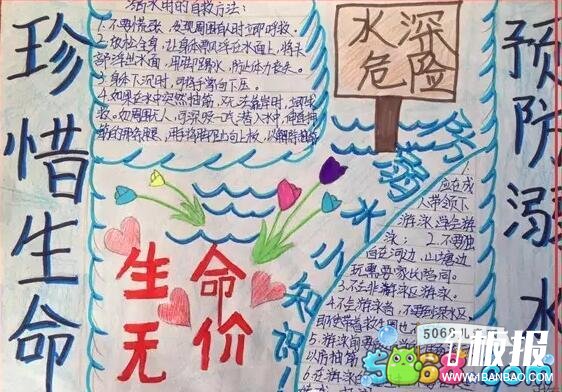 珍惜生命
溺水时的自救方法:
1.不要慌张,发现周围有人时立即呼救。
2.放松全身,让身体飘浮在水面上,将头
部浮出水面,用脚踢水,防止体力丧失。
3.身体下沉时,可将手掌向下压。
4.如果在水中突然抽筋,又无法靠岸时,立即求
救。如周围无人,可深吸一口气潜入水中,伸直抽筋
水深
危险
预防溺水
防溺水小知识
生命
无价
1.
应在成
人带领下
游泳学会游
泳;2.不要独
自在河边、山塘边
玩需要家长陪同。
3.不在非游泳区游泳。
4.不会游泳者,不要到深水区,
即使带着救生圈也不
5.游泳前要
以防抽筋
6.在游泳
5068儿
板报
WWW.1BANBAO.COM